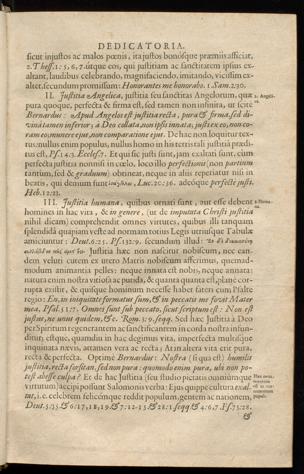 DEDICATORIA.
sicut injustos ac malos pœnis, ita justos bonósque præmiis afficiat,
2. Thess. 1: 5, 6, 7. utque eos, qui justitiam ac sanctitatem ipsius ex-
altant, laudibus celebrando, magnifaciendo, imitando, vicissim ex-
altet, secundum promissum: Honorantes me honorabo. 1. Sam. 2:30.
II. Justitia Angelica, justitia seu sanctitas Angelorum, quæ
2. Angeli-
ca.
pura quoque, perfecta & firma est, sed tamen non infinita, ut scite
Bernardus: Apud Angelos est justitia recta, pura & firma, sed di-
vinâ tamen inferior; à Deo collata, non ipsis innata; justi ex eo, non co-
ram eo; munere ejus, non comparatione ejus. De hac non loquitur tex-
tus: nullus enim populus, nullus homo in his terris tali justitiâ prædi-
tus est, Ps. 14:3. Et qui sic justi sunt, jam exaltati sunt, cum
perfecta justitia nonnisi in cœlo, loco illo perfectionis (non partium
tantùm, sed & graduum) obtineat, neque in aliis reperiatur nisi in
beatis, qui demum sunt Luc. 20:36. adeóque perfectè justi.
Heb. 12:22.
III. Justitia humana, quibus ornati sunt, aut esse debent
3. Huma-
na.
homines in hac vita, & in genere, (ut de imputata Christi justitia
nihil dicam) comprehendit omnes virtutes, quibus illi tanquam
splendidâ quapiam veste ad normam totius Legis utriusque Tabulæ
amiciuntur: Deut. 6:25. Ps. 132:9. secundum illud:
Justitia hæc non nascitur nobiscum, nec can-
dem veluti cutem ex utero Matris nobiscum afferimus, quemad-
modum animantia pelles: neque innata est nobis, neque annata:
natura enim nostra vitiosa ac putida, & quanta quanta est, planè cor-
rupta existit, & quisque hominum necesse habet fateri cum Psalte
regio: En, in iniquitate formatus sum, & in peccatis me fovit Mater
mea, Psal. 51:7. Omnes sunt sub peccato, sicut scriptum est: Non est
justus, ne unus quidem, &c. Rom. 3:9, seqq. Sed hæc Justitia à Deo
per Spiritum regenerantem ac sanctificantem in corda nostra infun-
ditur, estque, quamdiu in hac degimus vita, imperfecta multisque
inquinata nævis, attamen vera ac recta; At in altera vita erit pura,
recta & perfecta. Optimè Bernardus: Nostra (si qua est) humilis
justitia, recta forsitan, sed non pura: quomodo enim pura, ubi non po-
test abesse culpa? Et de hac Justitia (seu studio pietatis omniumque
Hæc orna-
mentum
est ac
virtutum) accipi possunt Salomonis verba: Ejus quippe cultura exal-
populi.
tat, i.e. celebrem felicémque reddit populum, gentem ac nationem,
Deut. 5:33. & 6:17, 18, 19. & 7:12-15. & 28:1. seqq. & 4:6,7. Ps. 73:28.
&